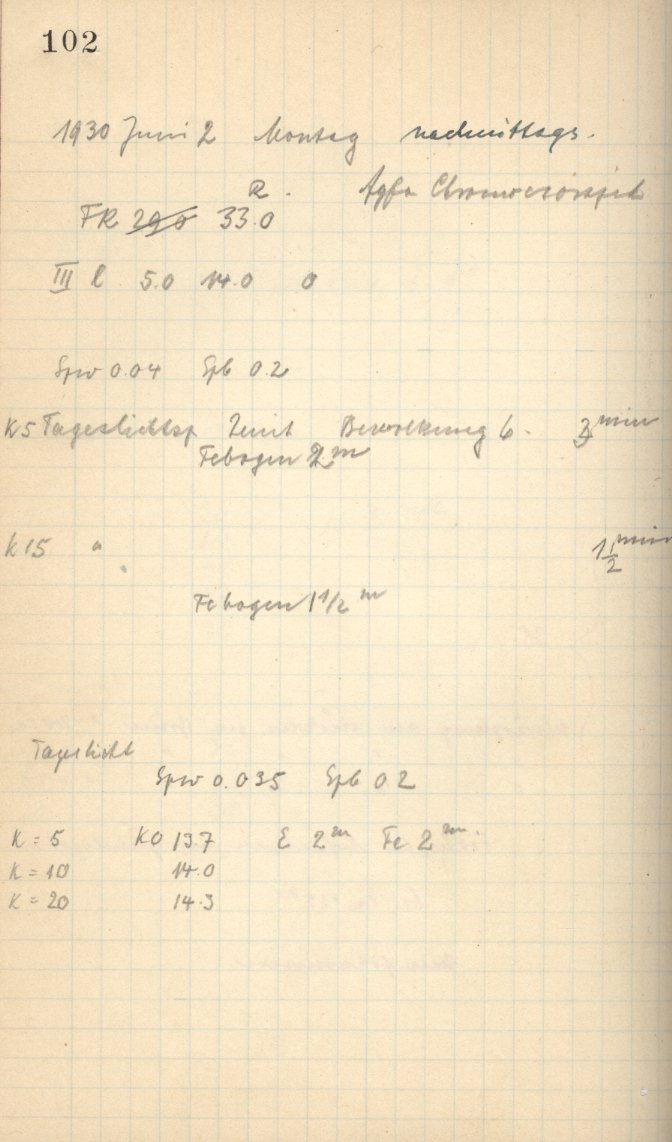 102
1930 Juni 2 Montag nachmittags.
R. Agfa Chromoisorapid
FR 29.0 33.0
III l 5.0 14.0 0
Spw 0.04 Spb 0.2
K5 Tageslichtsp Zenit Bewölkung 6. 3 min
Febogen 2 m
K 15 " 1 1/2 min
Febogen 1 1/2 m
Tageslicht
Spw 0.035 Spb 0.2
K = 5 KO 13.7 E 2 m Fe 2 m.
K = 10 14.0
K = 20 14.3